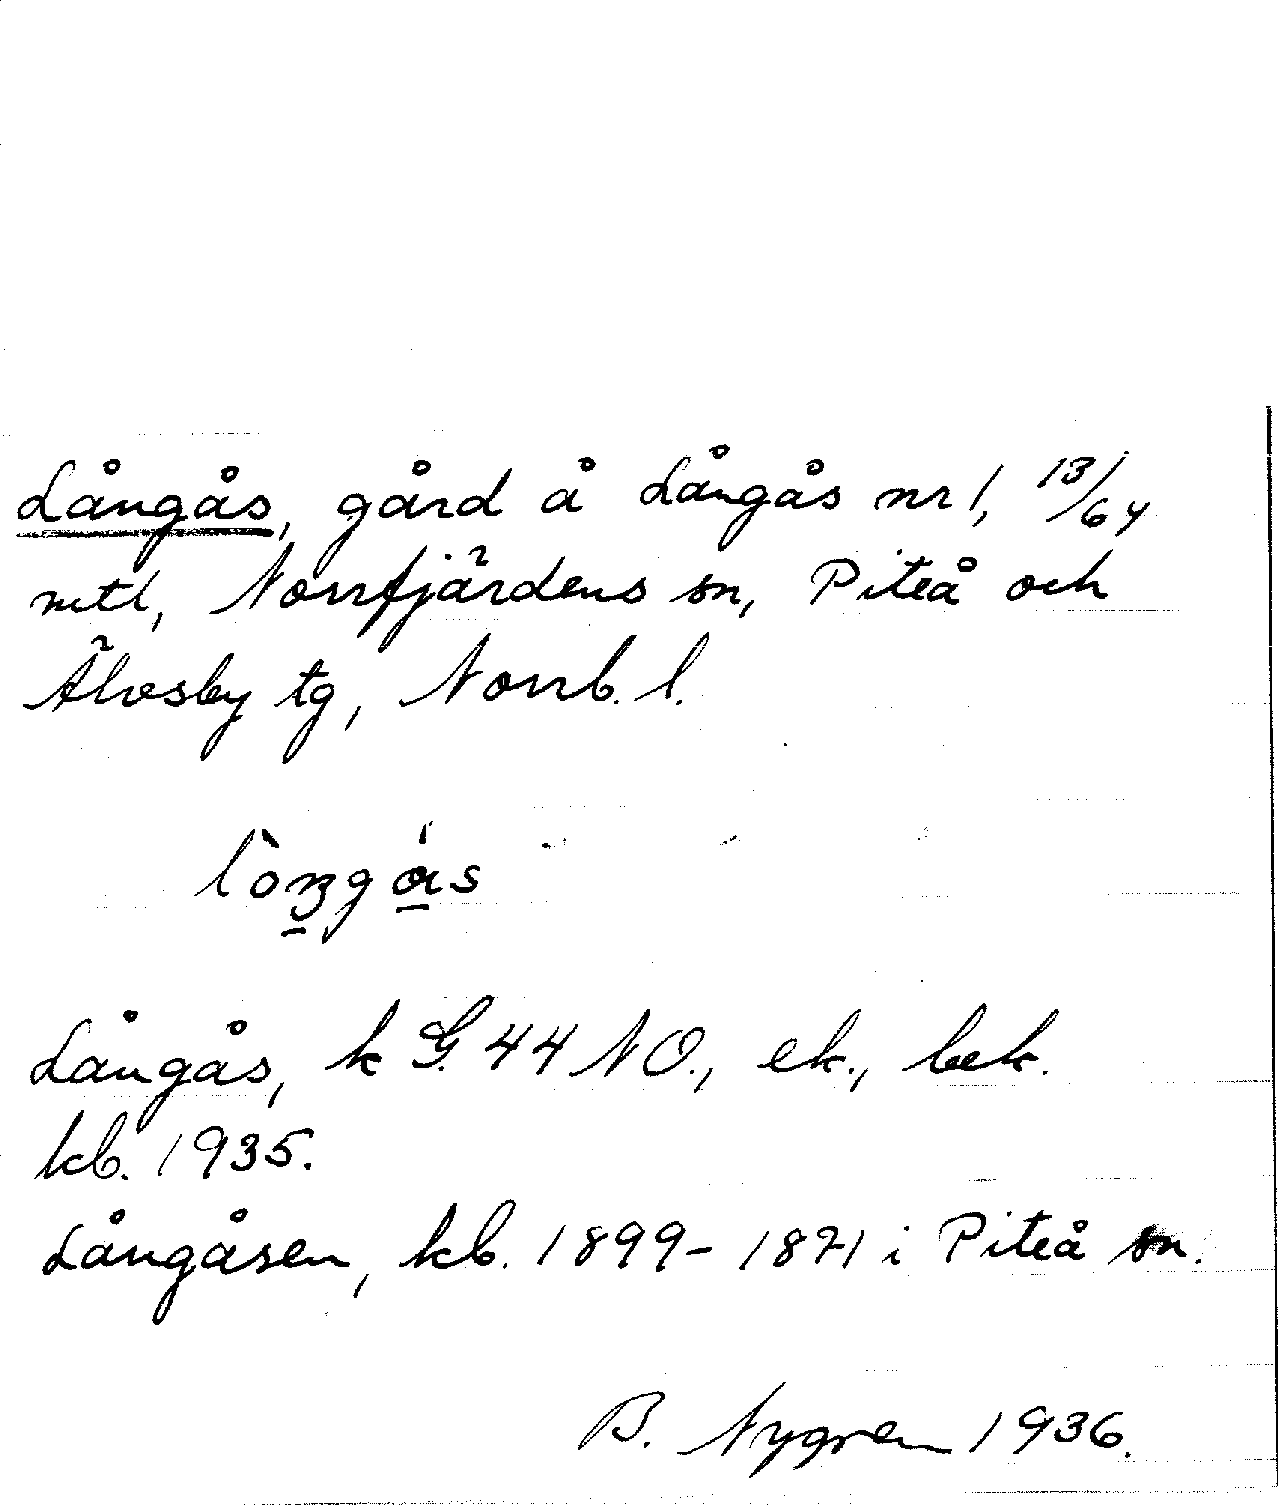 Långås, gård å Långås nr 1, 13/64
mtl, Norrfjärdens sn, Piteå och
Älvsby tg, Norrb. l.
Långås, k G. 44 NO., ek., bek.
kb. 1935.
Långåsen, kb. 1899-1871 i Piteå sn.
B. Nygren 1936.